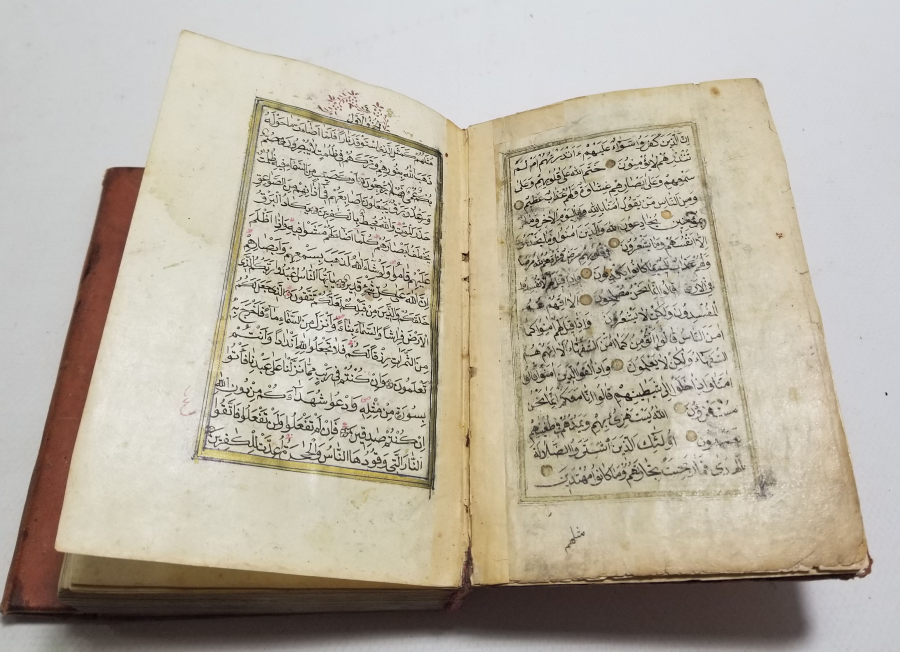 ان الذين كفروا سواء عليهم ءانذرتهم ام لم
تنذرهم لا يؤمنون ختم الله على قلوبهم وعلى
سمعهم وعلى ابصارهم غشاوة ولهم عذاب عظيم
ومن الناس من يقول امنا بالله وباليوم الاخر وما هم
بمؤمنين يخادعون الله والذين امنوا وما يخدعون
الا انفسهم وما يشعرون
ولهم عذاب اليم بما كانوا يكذبون
الارض قالوا انما نحن مصلحون الا انهم هم
المفسدون ولكن لا يشعرون واذا قيل لهم امنوا كما
امن الناس قالوا انؤمن كما امن السفهاء الا انهم هم
السفهاء ولكن لا يعلمون واذا لقوا الذين امنوا قالوا
امنا واذا خلوا الى شيطينهم قالوا انا معكم انما نحن
مستهزؤن الله يستهزئ بهم ويمدهم في طغيانهم
يعمهون اولئك الذين اشتروا الضلالة
بالهدى فما ربحت تجارتهم وما كانوا مهتدين
مثلهم
مثلهم كمثل الذي استوقد نارا فلما اضاءت ما حوله
ذهب الله بنورهم وتركهم في ظلمت لا يبصرون صم
بكم عمي فهم لا يرجعون او كصيب من السماء فيه ظلمت
ورعد وبرق يجعلون اصابعهم في اذانهم من الصواعق
حذر الموت والله محيط بالكفرين يكاد البرق
يخطف ابصارهم كلما اضاء لهم مشوا فيه واذا اظلم
عليهم قاموا ولو شاء الله لذهب بسمعهم وابصارهم
ان الله على كل شيء قدير يايها الناس اعبدوا ربكم الذي
خلقكم والذين من قبلكم لعلكم تتقون الذي جعل لكم
الارض فراشا والسماء بناء وانزل من السماء ماء فاخرج به
من الثمرات رزقا لكم فلا تجعلوا لله اندادا وانتم
تعلمون وان كنتم في ريب مما نزلنا على عبدنا فاتوا
بسورة من مثله وادعوا شهداءكم من دون الله
ان كنتم صدقين فان لم تفعلوا ولن تفعلوا فاتقوا
النار التي وقودها الناس والحجارة اعدت للكفرين